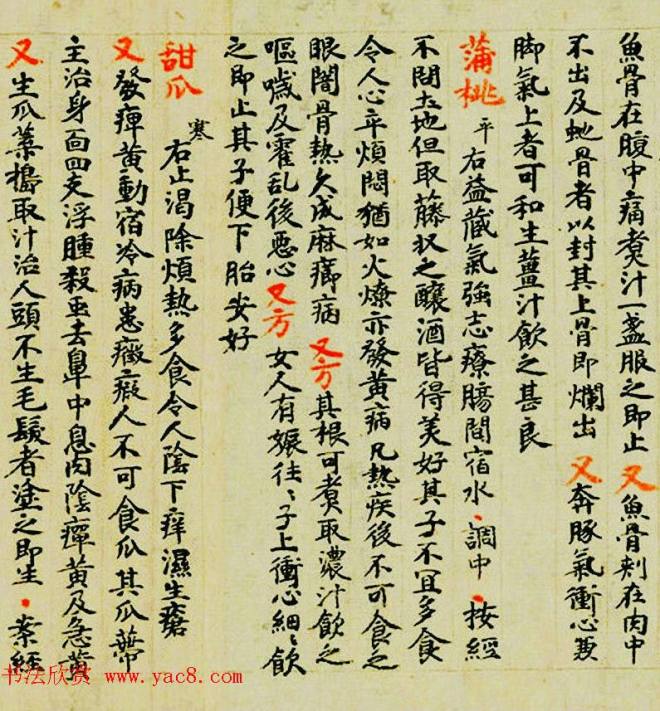 魚骨在腹中痛煮汁一盞服之即止 又 魚骨刾在肉中
不出及虵骨者以封其上骨即爛出 又 奔豚氣衝心兼
脚氣上者可和生薑汁飲之甚良
蒲桃 平 右益藏氣強志療腸間宿水·調中·按經
不問土地但取藤收之釀酒皆得美好其子不宜多食
令人心卒煩悶猶如火燎亦發黃病凡熱疾後不可食之
眼闇骨熱久成麻癤病 又方 其根可煮取濃汁飲之
嘔噦及霍乱後惡心 又方 女人有娠往〻子上衝心細〻飲
之即止其子便下胎安好
甜瓜 寒 右止渴除煩熱多食令人陰下痒濕生瘡
又 發痺黃動宿冷病患癥瘕人不可食瓜其瓜蔕
主治身面四支浮腫殺䖝去鼻中息肉陰癉黃及急黃
又 生瓜葉搗取汁治人頭不生毛髮者塗之即生·案經
书法欣赏 www.yac8.com